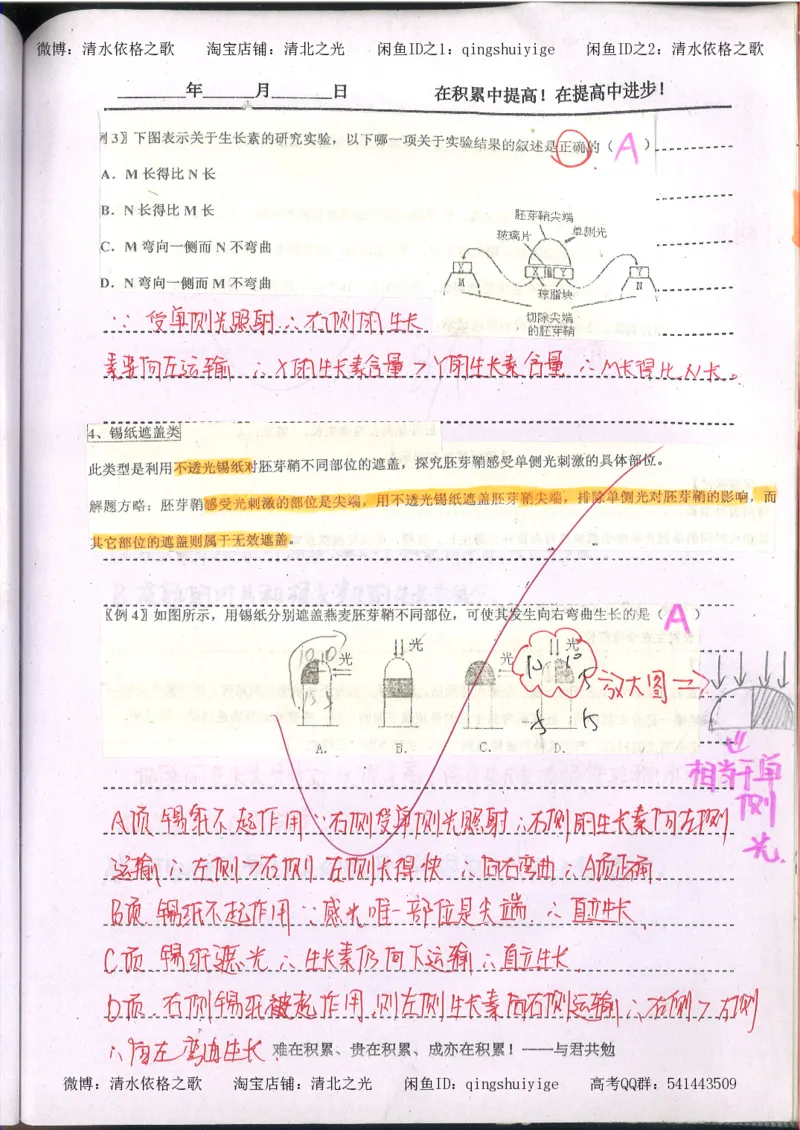 微博：清水依格之歌 淘宝店铺：清北之光 闲鱼ID之1：qingshuiyige 闲鱼ID之2：清水依格之歌
年 月 日 在积累中提高！在提高中进步！
例3〗下图表示关于生长素的研究实验，以下哪一项关于实验结果的叙述是正确的（ A ）
A．M长得比N长
B．N长得比M长
C．M弯向一侧而N不弯曲
D．N弯向一侧而M不弯曲
胚芽鞘尖端
玻璃片 单侧光
X X Y Y
M 琼脂块 N
切除尖端
的胚芽鞘
∵受单侧光照射∴右侧的生长
素要向左运输 ∴X的生长素含量＞Y的生长素含量 ∴M长得比N长。
4、锡纸遮盖类
此类型是利用不透光锡纸对胚芽鞘不同部位的遮盖，探究胚芽鞘感受单侧光刺激的具体部位。
解题方略：胚芽鞘感受光刺激的部位是尖端，用不透光锡纸遮盖胚芽鞘尖端，排除单侧光对胚芽鞘的影响，而
其它部位的遮盖则属于无效遮盖。
〖例4〗如图所示，用锡纸分别遮盖燕麦胚芽鞘不同部位，可使其发生向右弯曲生长的是（ A ）
光 光 光 光
10 10 10 10
放大图→
15 5 5 15
A. B. C. D.
相当于单
侧
光.
A项 锡纸不起作用∵右侧受单侧光照射∴右侧的生长素向左侧
运输∴左侧＞右侧 左侧长得快∴向右弯曲∴A项正确
B项 锡纸不起作用∵感光唯一部位是尖端 ∴直立生长
C项 锡纸遮光∴生长素仍向下运输∴直立生长
D项 右侧锡纸被起作用 则左侧生长素向右侧运输∴右侧＞右侧
∴向左弯曲生长.
难在积累、贵在积累、成亦在积累！——与君共勉
微博：清水依格之歌 淘宝店铺：清北之光 闲鱼ID：qingshuiyige 高考QQ群：541443509